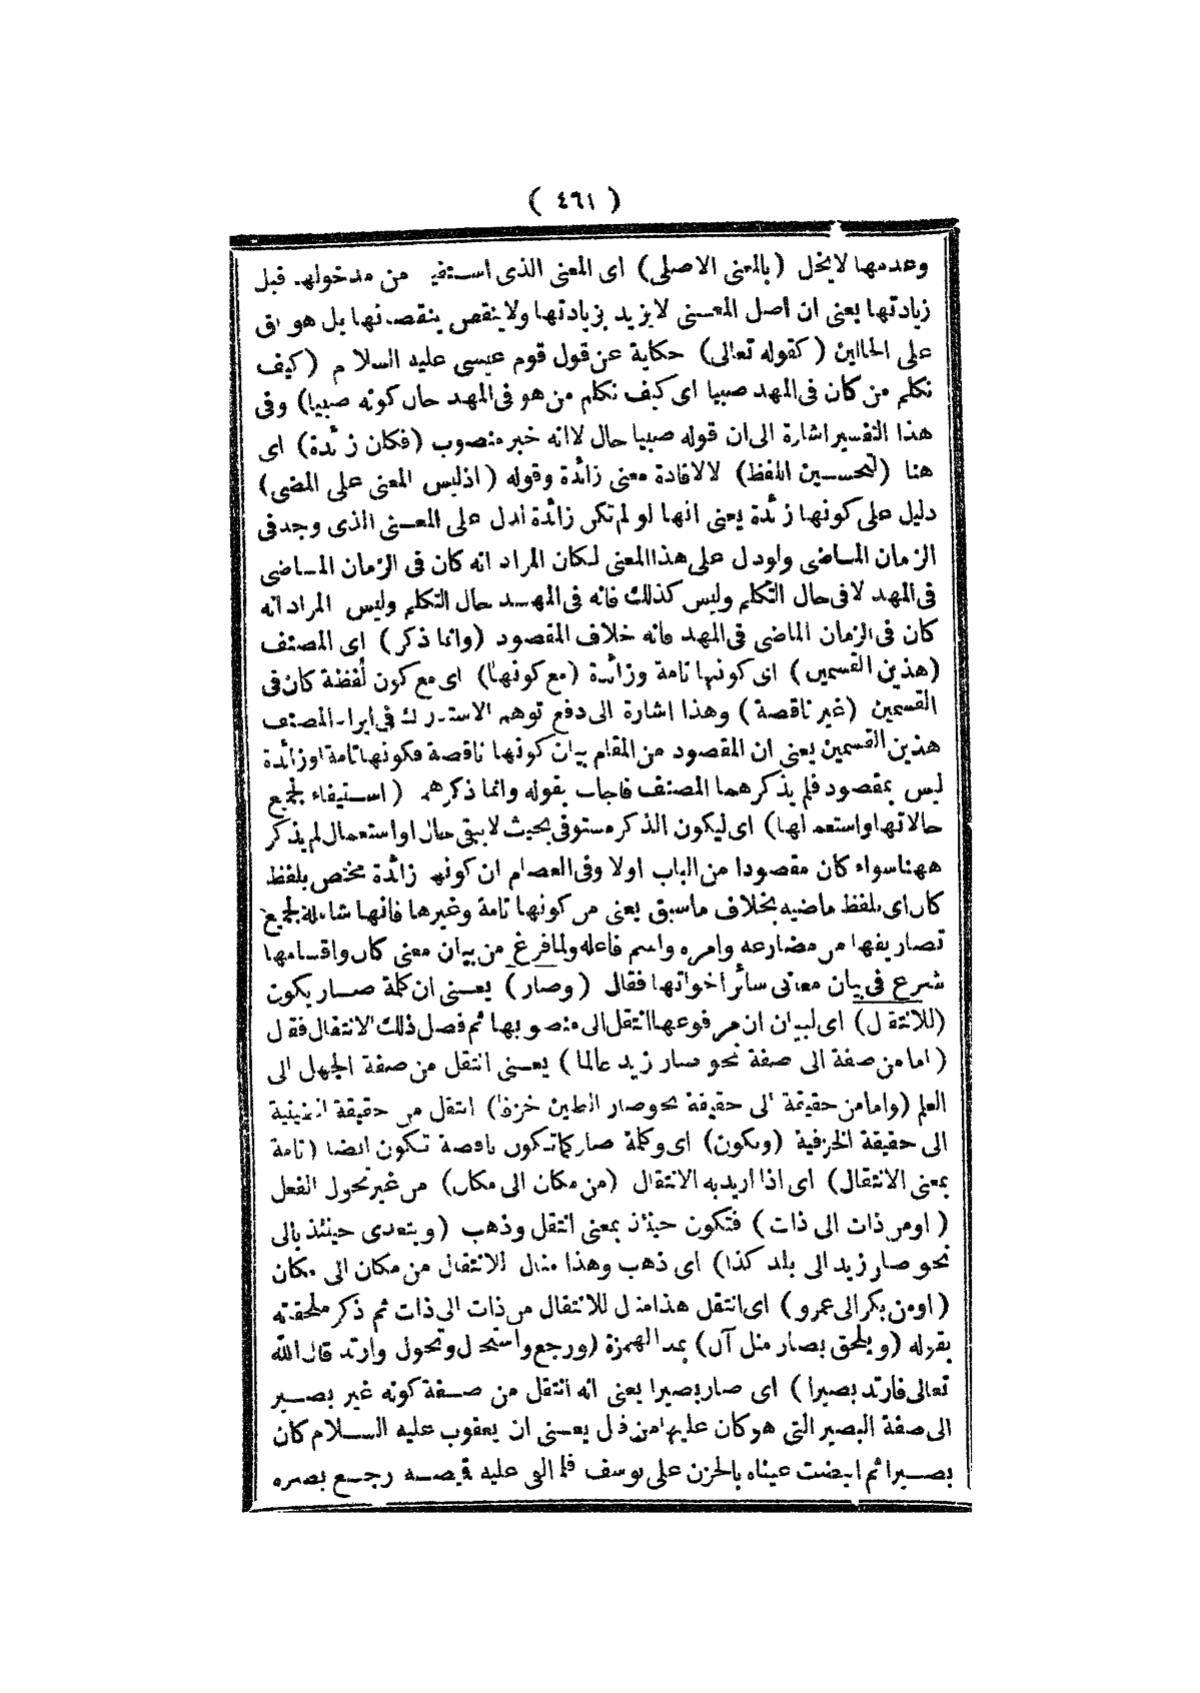 ( ٤٦١ )
وعدمها لايخل (بالمعنى الاصلى) اى المعنى الذى استفيد من مدخولها قبل
زيادتها يعنى ان اصل المعنى لايزيد بزيادتها ولاينقص بنقصانها بل هو باق
على الحالين (كقوله تعالى) حكاية عن قول قوم عيسى عليه السلام (كيف
نكلم من كان فى المهد صبيا اى كيف نكلم من هو فى المهد حال كونه صبيا) وفى
هذا التفسير اشارة الى ان قوله صبيا حال لاانه خبر منصوب (فكان زائدة) اى
هنا (لتحسين اللفظ) لالافادة معنى زائدة وقوله (اذليس المعنى على المضى)
دليل على كونها زائدة يعنى انها لو لم تكن زائدة لدل على المعنى الذى وجد فى
الزمان الماضى ولودل على هذا المعنى لكان المراد انه كان فى الزمان الماضى
فى المهد لافى حال التكلم وليس كذلك فانه فى المهد حال التكلم وليس المراد انه
كان فى الزمان الماضى فى المهد فانه خلاف المقصود (وانما ذكر) اى المصنف
(هذين القسمين) اى كونها تامة وزائدة (مع كونها) اى مع كون لفظة كان فى
القسمين (غير ناقصة) وهذا اشارة الى دفع توهم الاستدراك فى ايراد المصنف
هذين القسمين يعنى ان المقصود من المقام بيان كونها ناقصة فكونها تامة اوزائدة
ليس بمقصود فلم يذكرهما المصنف فاجاب بقوله وانما ذكرهما (استيفاء لجميع
حالاتها واستعمالها) اى ليكون الذكر مستوفى بحيث لايبقى حال اواستعمال لم يذكر
ههنا سواء كان مقصودا من الباب اولا وفى العصام ان كونها زائدة مختص بلفظ
كان اى بلفظ ماضيه بخلاف ماسبق يعنى من كونها تامة وغيرها فانها شاملة لجميع
تصاريفها من مضارعه وامره واسم فاعله ولما فرغ من بيان معنى كان واقسامها
شرع فى بيان معانى سائر اخواتها فقال (وصار) يعنى ان كلمة صار يكون
(للانتقال) اى لبيان ان مرفوعها انتقل الى منصوبها ثم فصل ذلك الانتقال فقال
(اما من صفة الى صفة نحو صار زيد عالما) يعنى انتقل من صفة الجهل الى
العلم (وامامن حقيقة الى حقيقة نحو صار الطين خزفا) انتقل من حقيقة الطينية
الى حقيقة الخزفية (وتكون) اى وكلمة صار كماتكون ناقصة تكون ايضا (تامة
بمعنى الانتقال) اى اذا اريد به الانتقال (من مكان الى مكان) من غير تحول الفعل
(اومن ذات الى ذات) فتكون حينئذ بمعنى انتقل وذهب (ويتعدى حينئذ بالى
نحو صار زيد الى بلد كذا) اى ذهب وهذا مثال للانتقال من مكان الى مكان
(اومن بكر الى عمرو) اى انتقل هذا مثال للانتقال من ذات الى ذات ثم ذكر ملحقته
بقوله (ويلحق بصار مثل آل) بمد الهمزة (ورجع واستحال وتحول وارتد قال الله
تعالى فارتد بصيرا) اى صار بصيرا يعنى انه انتقل من صفة كونه غير بصير
الى صفة البصير التى هو كان عليها من قبل يعنى ان يعقوب عليه السلام كان
بصيرا ثم ابيضت عيناه بالحزن على يوسف فلما القى عليه قميصه رجع بصره